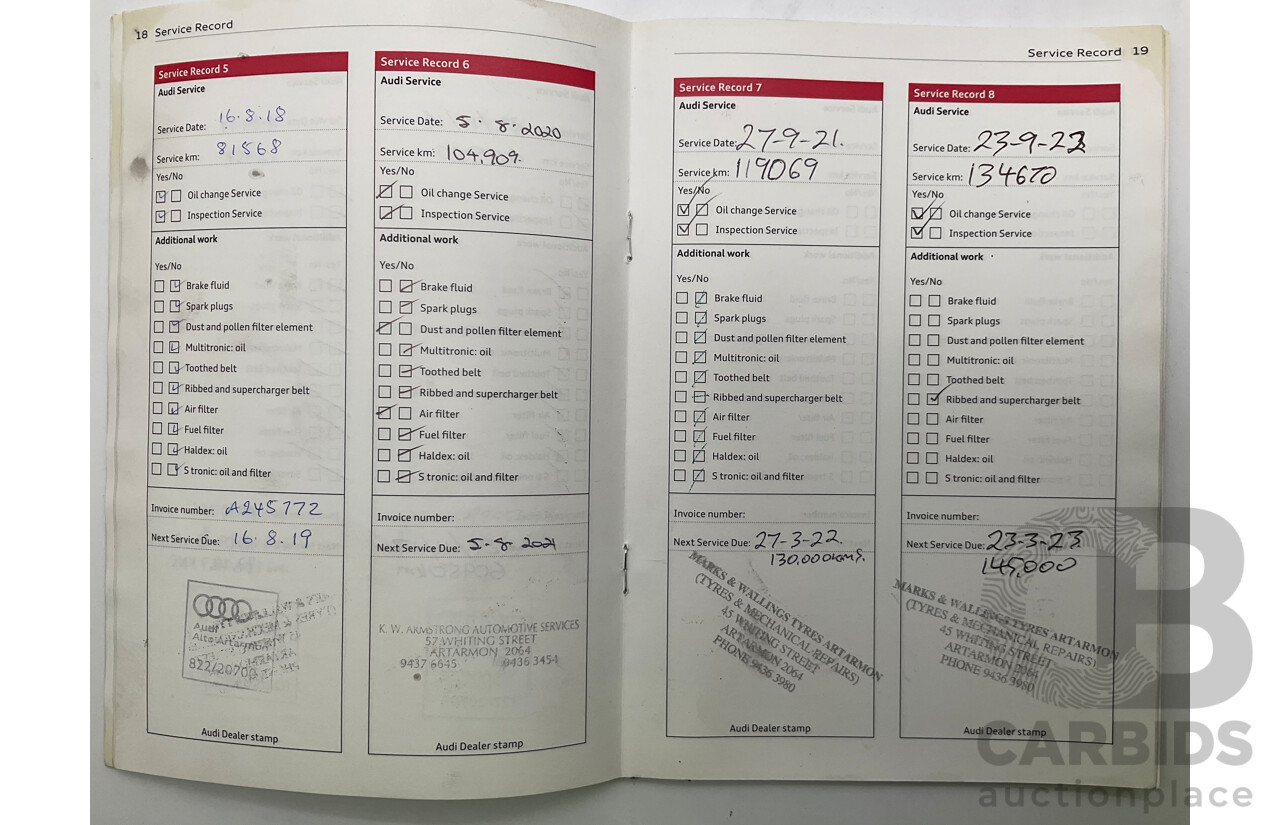 18 Service Record
Service Record 5
Audi Service
Service Date: 16.8.18
Service km: 81568
Yes/No
Oil change Service
Inspection Service
Additional work
Yes/No
Brake fluid
Spark plugs
Dust and pollen filter element
Multitronic: oil
Toothed belt
Ribbed and supercharger belt
Air filter
Fuel filter
Haldex: oil
S tronic: oil and filter
Invoice number: A245772
Next Service Due: 16.8.19
Audi
822/20700
Audi Dealer stamp
Service Record 6
Audi Service
Service Date: 5.8.2020
Service km: 104,909.
Yes/No
Oil change Service
Inspection Service
Additional work
Yes/No
Brake fluid
Spark plugs
Dust and pollen filter element
Multitronic: oil
Toothed belt
Ribbed and supercharger belt
Air filter
Fuel filter
Haldex: oil
S tronic: oil and filter
Invoice number:
Next Service Due: 5.8.2021
K. W. ARMSTRONG AUTOMOTIVE SERVICES
57 WHITING STREET
ARTARMON 2064
9437 6645 9436 3454
Audi Dealer stamp
Service Record 19
Service Record 7
Audi Service
Service Date: 27-9-21.
Service km: 119069
Yes/No
Oil change Service
Inspection Service
Additional work
Yes/No
Brake fluid
Spark plugs
Dust and pollen filter element
Multitronic: oil
Toothed belt
Ribbed and supercharger belt
Air filter
Fuel filter
Haldex: oil
S tronic: oil and filter
Invoice number:
Next Service Due: 27-3-22.
130,000kms.
MARKS & WALLINGS TYRES ARTARMON
(TYRES & MECHANICAL REPAIRS)
45 WHITING STREET
ARTARMON 2064
PHONE 9436 3980
Audi Dealer stamp
Service Record 8
Audi Service
Service Date: 23-9-22
Service km: 134670
Yes/No
Oil change Service
Inspection Service
Additional work
Yes/No
Brake fluid
Spark plugs
Dust and pollen filter element
Multitronic: oil
Toothed belt
Ribbed and supercharger belt
Air filter
Fuel filter
Haldex: oil
S tronic: oil and filter
Invoice number:
Next Service Due: 23-3-23
145,000
MARKS & WALLINGS TYRES ARTARMON
(TYRES & MECHANICAL REPAIRS)
45 WHITING STREET
ARTARMON 2064
PHONE 9436 3980
Audi Dealer stamp
CARBIDS
auctionplace